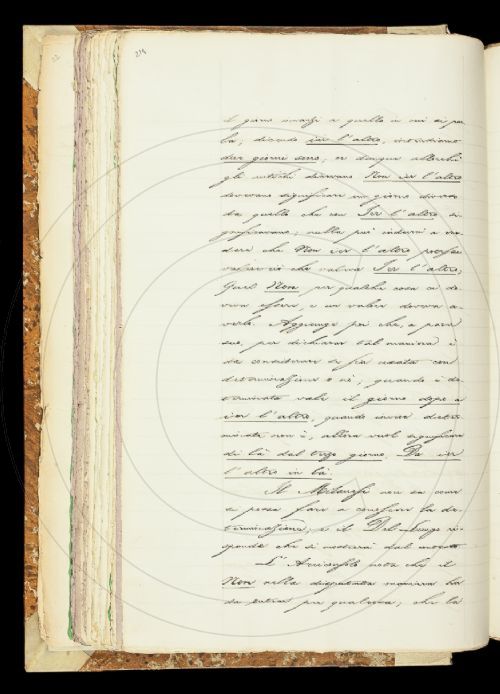 214
il giorno innanzi a quello in cui si par
la; dicendo ier l'altro, intendiamo
due giorni sono, se dunque allorchè
gli antichi dicevano Non ier l'altro
dovevano significare un giorno diverso
da quello che con Ier l'altro si
gnificavano; nulla può indurmi a cre
dere che Non ier l'altro
valesse ciò che valeva Ier l'altro,
Quel Non per qualche cosa ci do
veva essere, e un valore doveva a-
verlo. Aggiunge poi che, a parer
suo, per dichiarar tal maniera è
da considerare se sia usata con
determinazione o nò; quando è de
terminata vale il giorno dopo a
ier l'altro, quando invece deter
minata non è, allora vuol significare
di là dal terzo giorno. Da ier
l'altro in là.
Il Milanesi non sa come
si possa fare a conoscere la de
terminazione, e il Del-Lungo ri-
sponde che si vedrà dal
L'Arciconsolo nota che il
Non nella disputata maniera ha
da entrar per qualcosa; che la